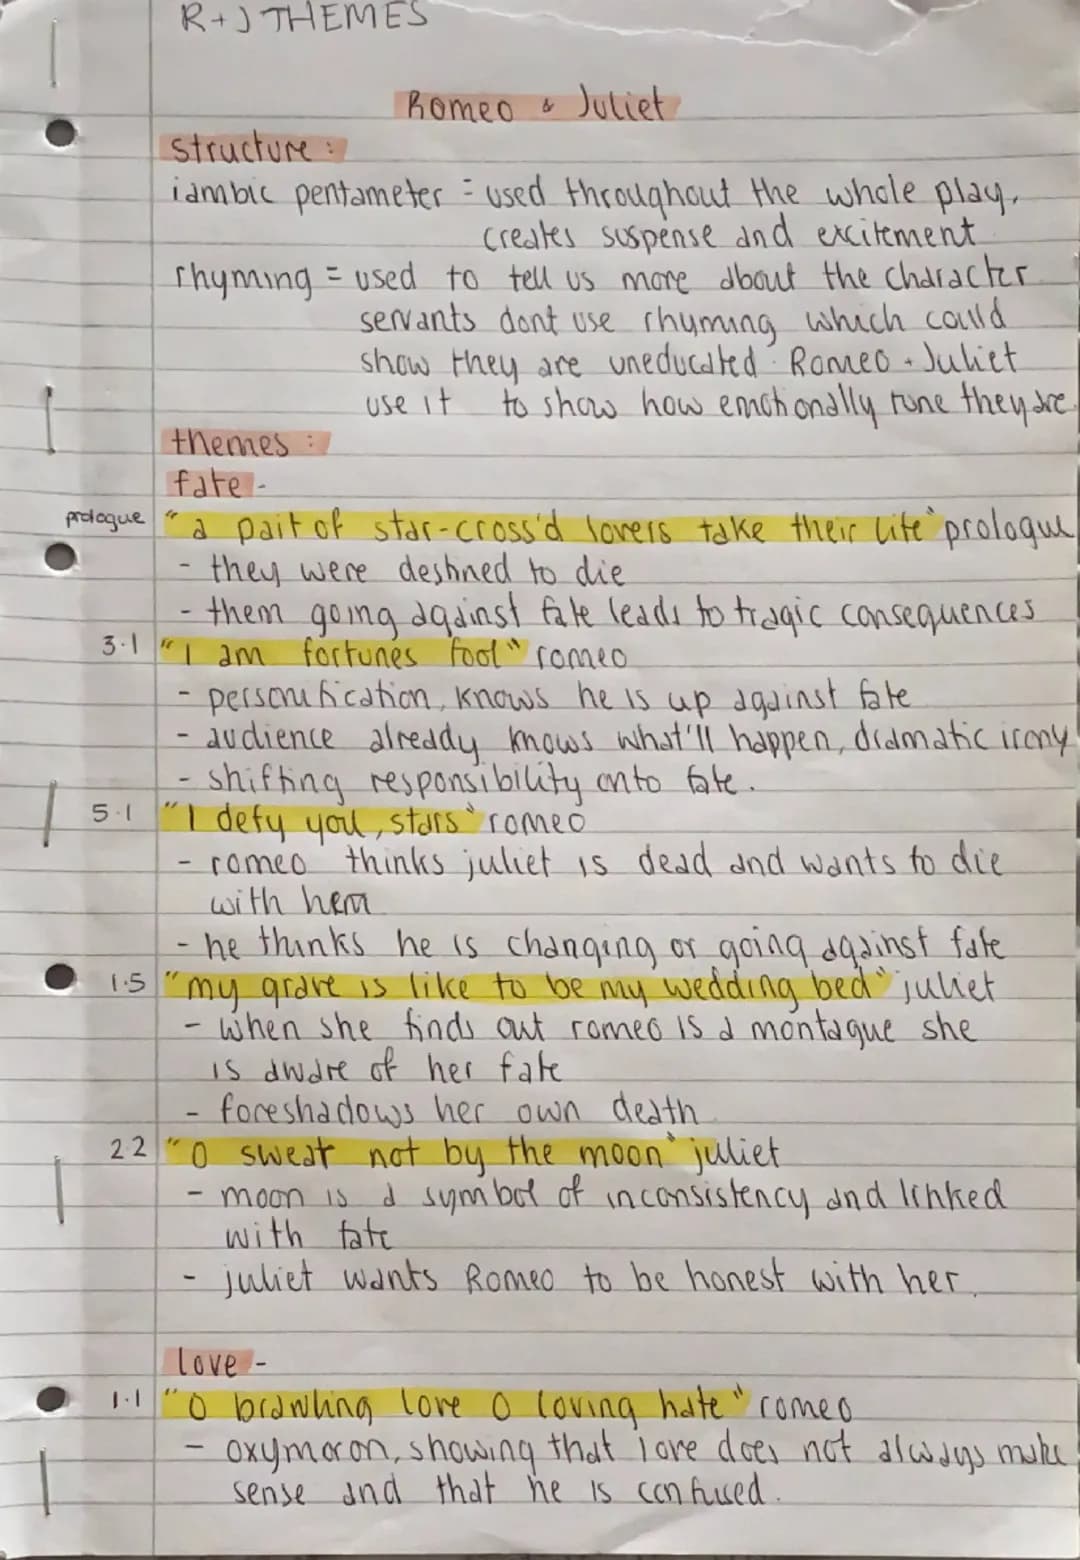 R+J THEMES
Romeo & Juliet
structure :
iambic pentameter = used throughout the whole play,
creates suspense and excitement
rhyming = used to tell us more about the character
servants dont use rhyming which could
show they are uneducated. Romeo + Juliet
use it to show how emotionally tune they are
themes :
fate -
prologue "a pair of star-cross'd lovers take their life" prologue
- they were destined to die
- them going against fate leads to tragic consequences
3.1 "I am fortunes fool" romeo
- personification, knows he is up against fate
- audience already knows what'll happen, dramatic irony
- shifting responsibility onto fate.
5.1 "I defy you, stars" romeo
- romeo thinks juliet is dead and wants to die
with hem
- he thinks he is changing or going against fate
1.5 "my grave is like to be my wedding bed" juliet
- when she finds out romeo is a montague she
is aware of her fate
- foreshadows her own death
2.2 "O swear not by the moon" juliet
- moon is a symbol of inconsistency and linked
with fate
- juliet wants Romeo to be honest with her.
love -
1.1 "O brawling love O loving hate" romeo
- oxymoron, showing that love does not always make
sense and that he is confused.